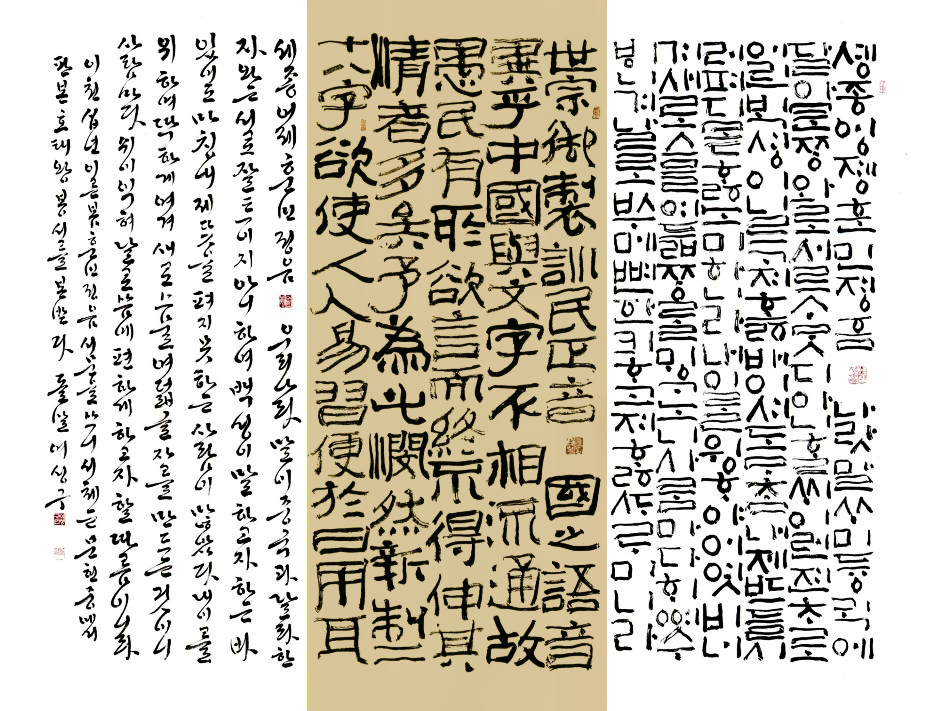 솅종엉졩훈민졍ᅙᅳᆷ 나랏말ᄊᆞ미듕국에
달아문ᄍᆞᆼ와로서르ᄉᆞᄆᆞᆺ디아니ᄒᆞᆯᄊᆡ이런젼ᄎᆞ로
어린ᄇᆡᆨ셩이니르고져홇배이셔도ᄆᆞᄎᆞᆷ내제ᄠᅳ들
시러펴디몯ᄒᆞᇙ노미하니라내이ᄅᆞᆯ윙ᄒᆞ야어엿비너
겨새로스믈여듧ᄍᆞᆼᄅᆞᆯᄆᆡᇰᄀᆞ노니사ᄅᆞᆷ마다ᄒᆡᅇᅧ수
ᄫᅵ니겨날로ᄡᅮ메뼌ᅙᅡᆫ킈ᄒᆞ고져ᄒᆞᇙᄯᆞᄅᆞ미니라
世宗御製訓民正音 國之語音
異乎中國與文字不相流通故
愚民有所欲言而終不得伸其
情者多矣予為此憫然新制二
十八字欲使人人易習便於日用耳
세종어제훈민정음 우리나라 말이 중국과 달라 한
자와는 서로 잘 통하지 아니하여 백성이 말하고자 하는 바
있어도 마침내 제 뜻을 펴지 못하는 사람이 많았다 내 이를
위하여 딱하게 여겨 새로 스물여덟 글자를 만드는 것이니
사람마다 쉬이 익혀 날로 씀에 편하게 하고자 할 따름이니라
이천십년 이른봄 훈민정음 서문을 쓰니 서체는 문헌중에서
판본 호태왕 를 본받다